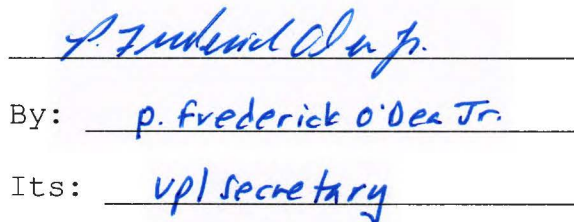 P. Frederick O'Dea Jr.
By: p. frederick o'Dea Jr.
Its: vp/secretary